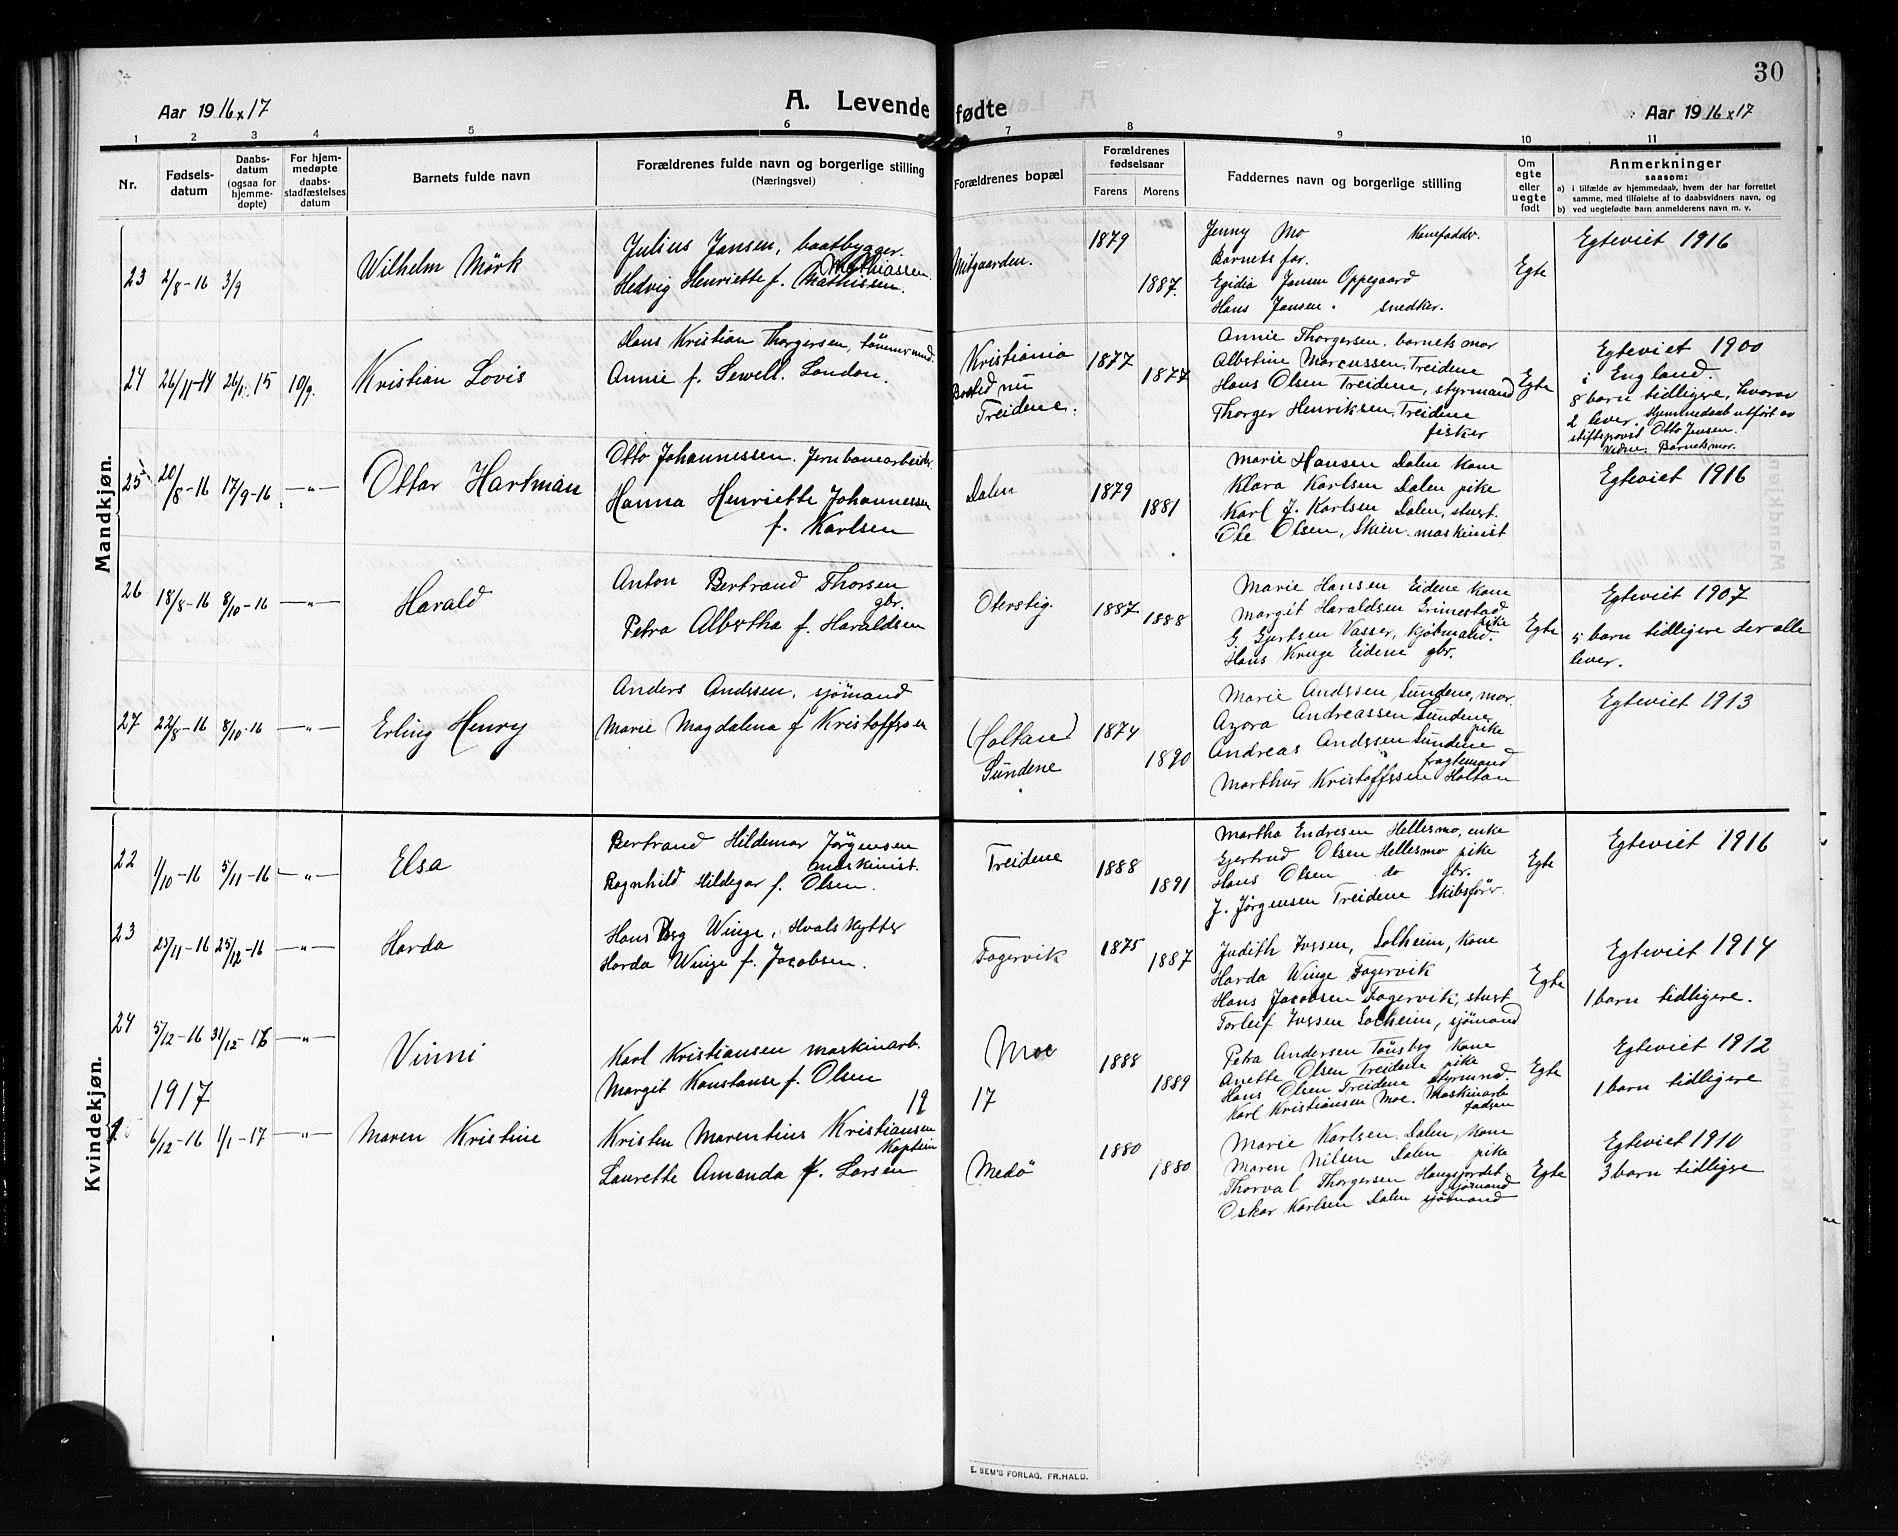 30
Aar 1916 x 17
A. Levende fødte
Aar 1916 x 17
1 2 3 4 5 6 7 8 9 10 11
Nr.
Fødsels-
datum
Daabs-
datum
(ogsaa for
hjemme-
døpte)
For hjem-
medøpte
daabs-
stadfæstelses
datum
Barnets fulde navn
Forældrenes fulde navn og borgerlige stilling
(Næringsvei)
Forældrenes bopæl
Forældrenes
fødselsaar
Farens Morens
Faddernes navn og borgerlige stilling
Om
egte
eller
uegte
født
Anmerkninger
saasom:
a) i tilfælde av hjemmedaab, hvem der har forrettet
samme, med tilføielse af to daabsvidners navn, og
b) ved uegtefødte barn anmelderens navn m. v.
Mandkjøn.
23 2/8-16 3/9
Wilhelm Mörk
Julius Jansen, baatbygger.
Mathiassen
Hedvig Henriette f. Mathissen.
Mitgaarden.
1879
1887.
Jenny Mo
Barnets far.
Egidia Jansen Oppegaard
Hans Jansen. snedker.
Egte
Egteviet 1916
24 26/11-14 26/1 15 10/9.
Kristian Lovis
Hans Kristian Thorgersen, tömmermd.
Annie f. Sewell. London.
Kristiania
Bosted nu
Treidene.
1877
1877
Annie Thorgersen, barnets mor
Albertine Marcussen, Treidene
Hans Olsen Treidene, styrmand
Thorger Henriksen, Treidene
fisker
Egte
Egteviet 1900
i England.
8 barn tidligere, hvorav
2 lever. Hjemmedaab utført av
stiftsprovst Otto Jensen.
Vidne: Barnets mor.
25 20/8-16 17/9-16 —"—
Ottar Hartman
Otto Johannessen. Jernbanearbeider.
Hanna Henriette Johannessen
f. Karlsen
Dalen
1879
1881
Marie Hansen Dalen kone
Klara Karlsen Dalen pike
Karl J. Karlsen Dalen, stuert.
Ole Olsen, Skien. maskinist
Egteviet 1916
26 18/8-16 8/10-16 —"—
Harald
Anton Bertrand Thorsen
gbr.
Petra Albertha f. Haraldsen
Oterstig.
1887
1888
Marie Hansen Eidene kone
Margit Haraldsen Grimestad
pike
G. Gjertsen Vasser, kjöbmand.
Hans Kruge Eidene gbr.
Egte
Egteviet 1907
5 barn tidligere der alle
lever.
27 22/8-16 8/10-16 —"—
Erling Henry
Anders Andssen, sjömand
Marie Magdalena f Kristoffersen
(Holtan)
Sundene
1874
1890
Marie Andssen Sundene, mor.
Azora Andreassen Sundene
pike
Andreas Andssen Sundene
fragtemand
Marthur Kristoffssen Holtan
Egteviet 1913
Kvindekjøn.
22 1/10-16 5/11-16 —"—
Elsa
Bertrand Hildemar Jörgensen
maskinist.
Ragnhild Hildegar f. Olsen.
Treidene
1888
1891
Martha Endresen Hellesmo, enke
Gjertrud Olsen Hellesmo pike
Hans Olsen do gbr.
J. Jörgensen Treidene Skibsförer
Egte
Egteviet 1916
23 25/11-16 25/12-16 —"—
Harda
Hans Berg Winge, Hvalskytter
Harda Winge f. Jacobsen.
Fagervik
1875
1887
Judith Ivssen, Solheim, kone
Harda Winge Fagervik
Hans Jacobsen Fagervik, stuert
Torleif Ivssen Solheim, sjömand
Egte
Egteviet 1914
1 barn tidligere.
24 5/12-16 31/12-16 —"—
Vinni
Karl Kristiansen maskinarb.
Margit Konstanse f. Olsen
Moe
1888
1889
Petra Andersen Tönsbg kone
Anette Olsen Treidene pike
Hans Olsen Treidene styrmnd.
Karl Kristiansen Moe. Maskinarb
fadsen
Egte
Egteviet 1912
1 barn tidligere
1917 19 17
1. 6/12-16 1/1-17 —"—
Maren Kristine
Kristen Marentius Kristiansen
Kaptein
Laurette Amanda f. Larsen
Medö
1880
1880
Marie Karlsen. Dalen, kone
Maren Nilsen Dalen pike
Thorval Thorgersen Haugjordet
sjömand
Oskar Karlsen Dalen sjömand
Egte
Egteviet 1910
3 barn tidligere
E. SEM'S FORLAG, FR.HALD.